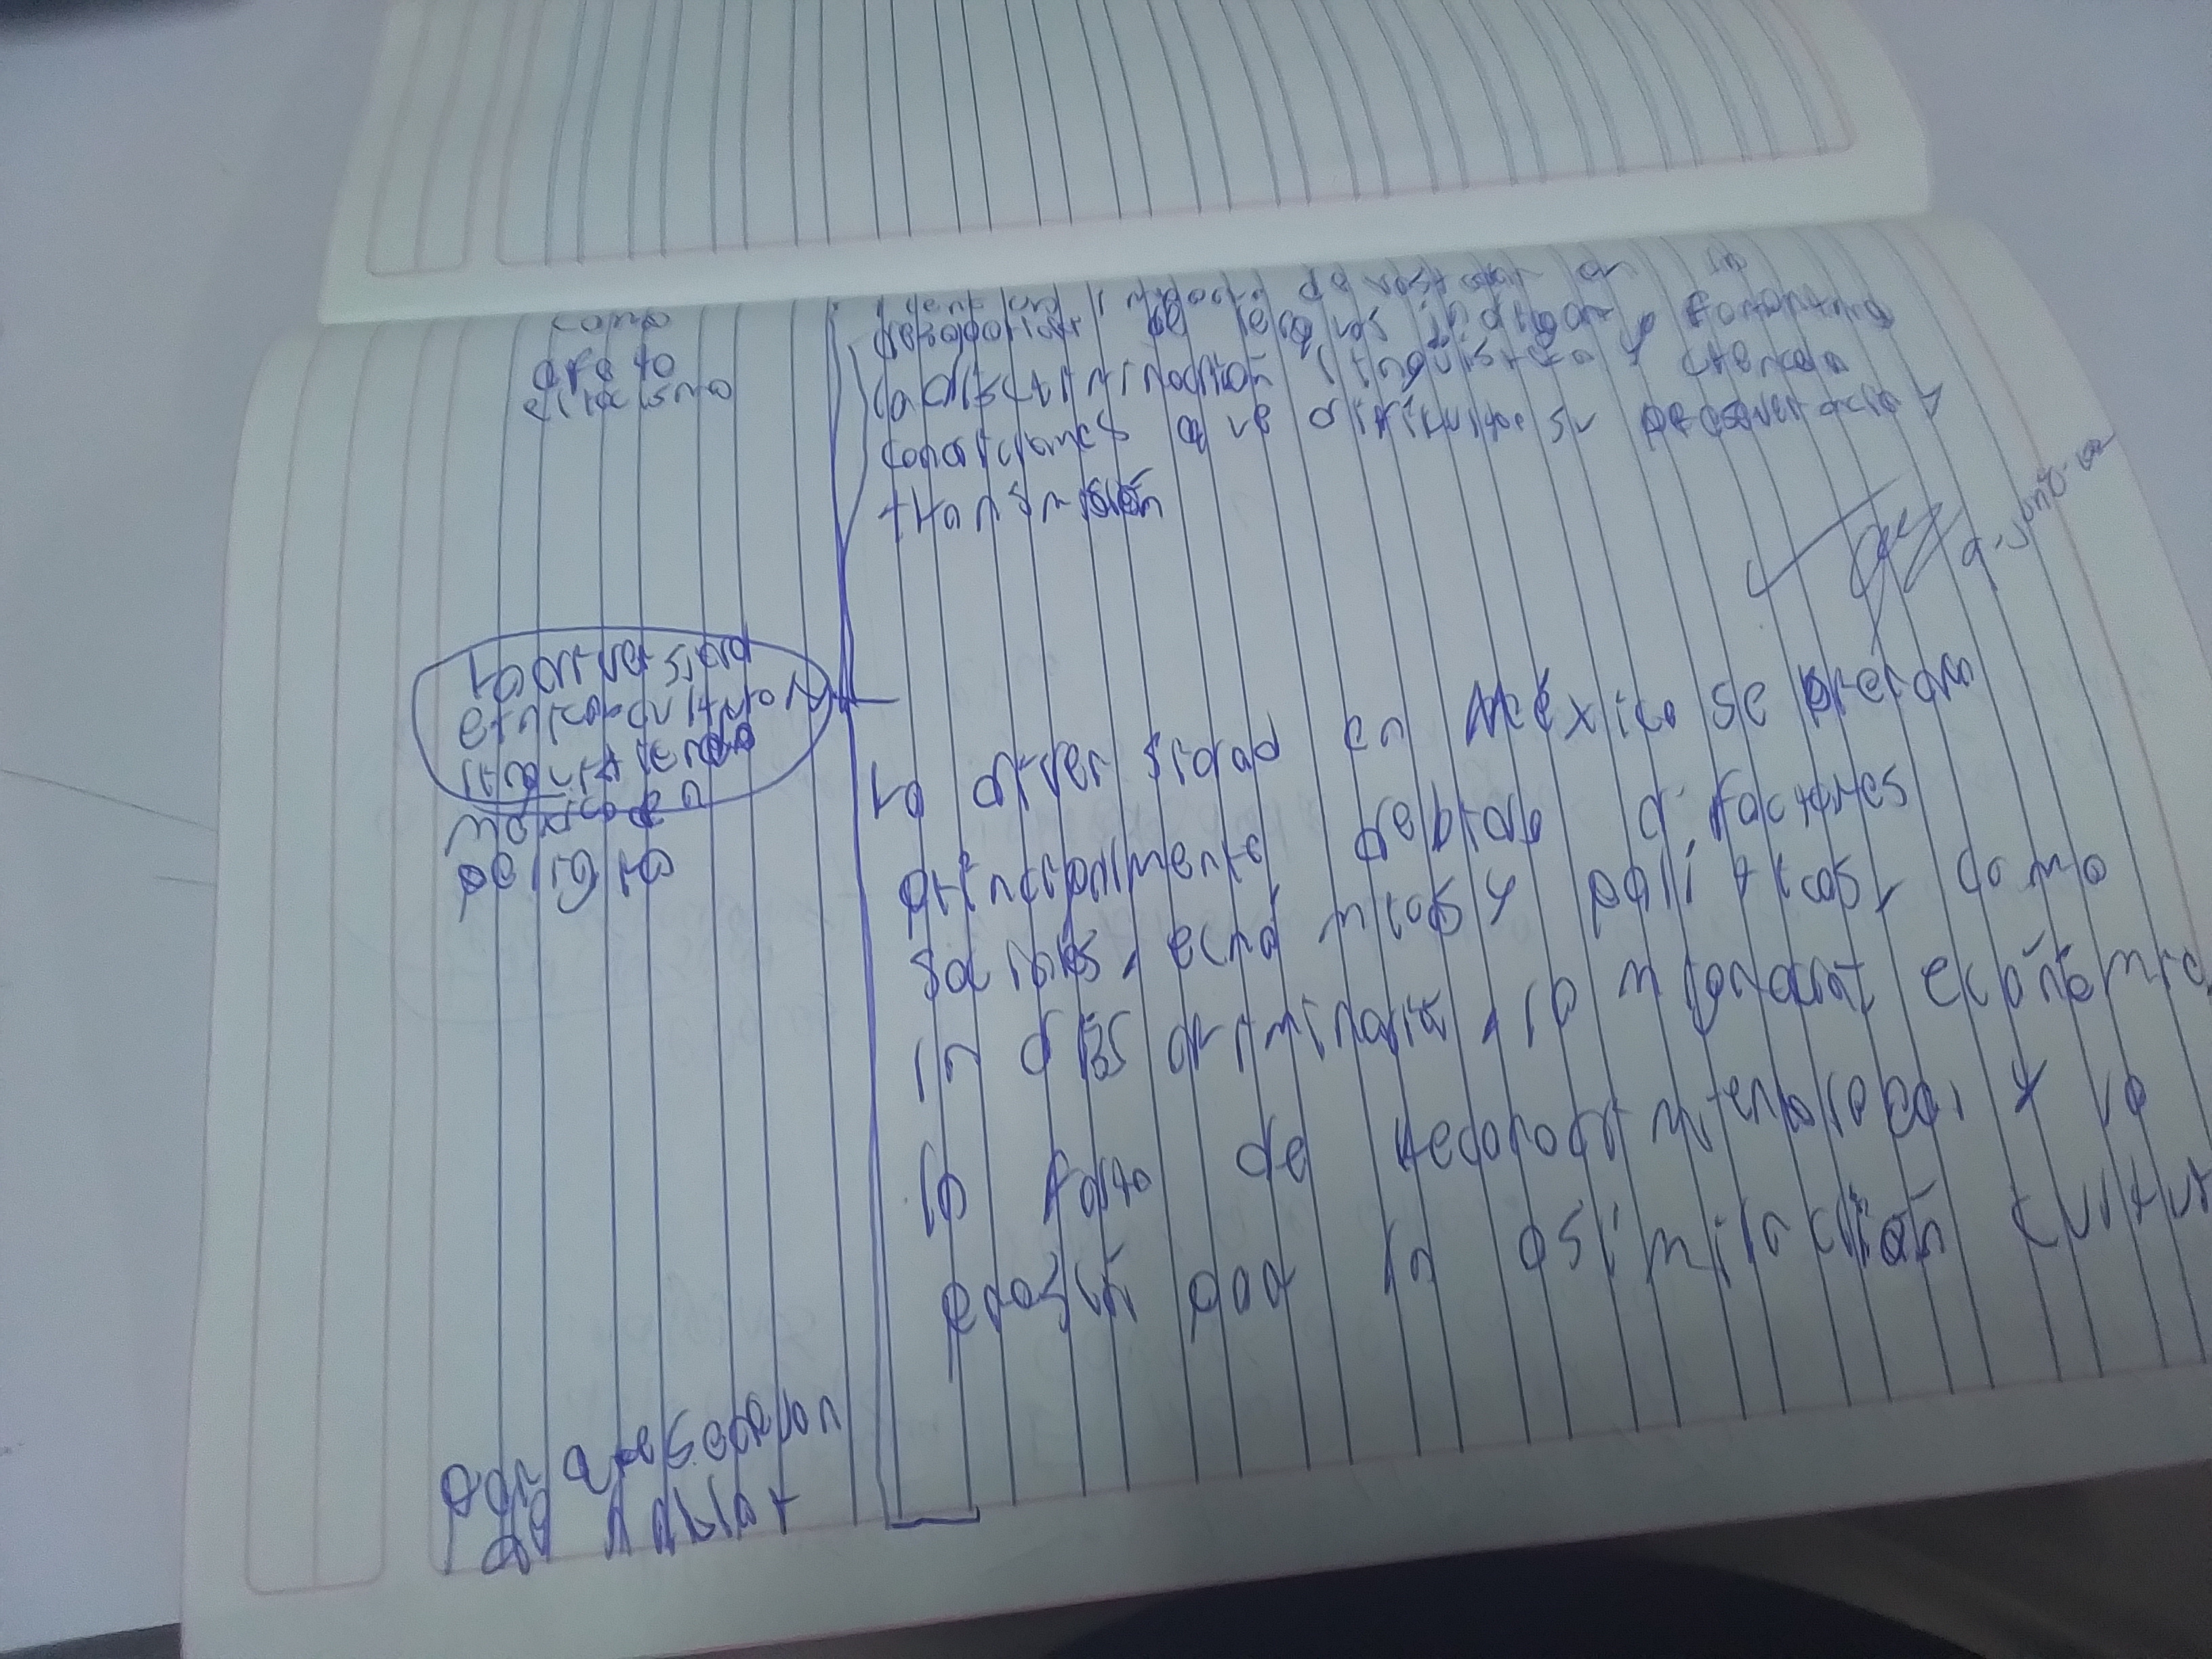 como
afecto
el racismo
tiene un impacto devastador en la
desaparición de lenguas indigan y fomentma
la discriminación linguistica y crencda
condiciones que dificultae su preservación y
transmisión
la diversida
etnico-cultural
linguistica en
mexico en
peligro
la diversidad en México se pierdn
principalmente debido a factores
sociales, ecnómicas y políticas, como
la discriminación, la migración económic
la falta de
y la
erosión por la asimilación cultur
por que se deben
hablar